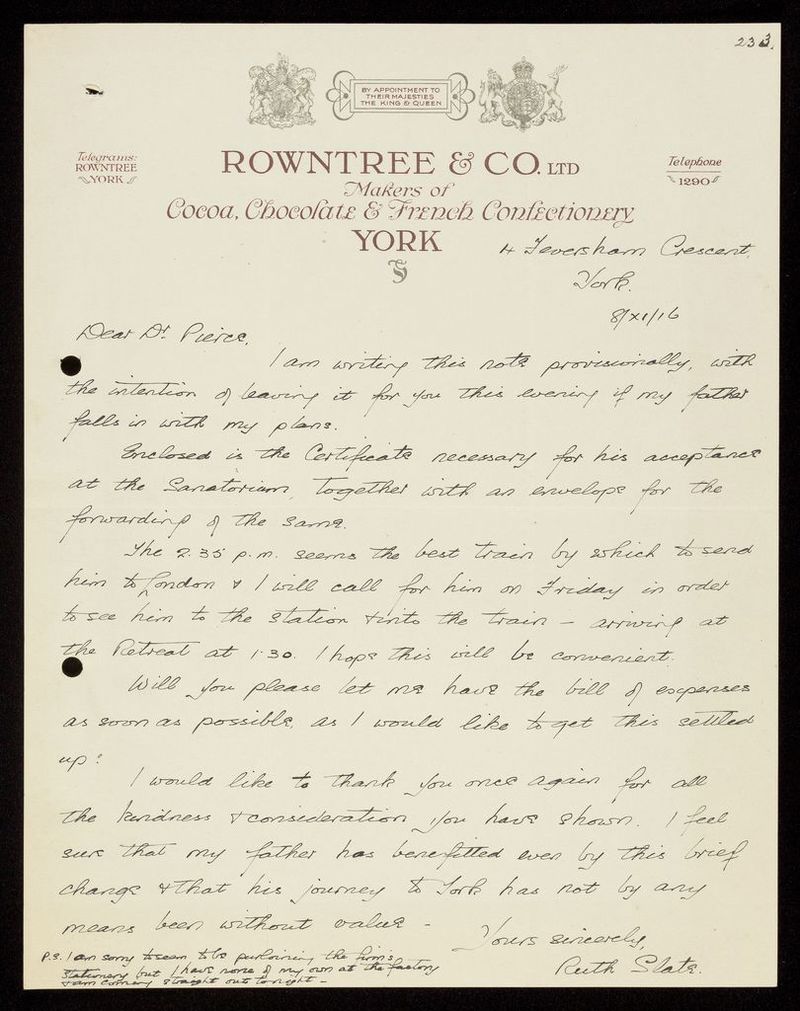 233.
BY APPOINTMENT TO
THEIR MAJESTIES
THE KING & QUEEN
Telegrams:
ROWNTREE
YORK
ROWNTREE & CO. LTD
Telephone
1290
Makers of
Cocoa, Chocolate & French Confectionery
YORK
4 Feversham Crescent,
York.
8/XI/16
Dear Dr Pierce,
I am writing this note provisionally, with
the intention of leaving it for you this evening if my father
falls in with my plans.
Enclosed is the Certificate necessary for his acceptance
at the Sanatorium, together with an envelope for the
forwarding of the same.
The 2.35 p.m. seems the best train by which to send
him to London & I will call for him on Friday in order
to see him to the station & into the train – arriving at
the Retreat at 1.30. I hope this will be convenient.
Will you please let me have the bill of expenses
as soon as possible, as I would like to get this settled
up?
I would like to thank you once again for all
the kindness & consideration you have shown. I feel
sure that my father has benefitted even by this brief
change & that his journey to York has not by any
means been without value –
Yours sincerely,
Ruth Slate.
P.S. I am sorry to seem to be purloining the firm's
stationery but I have none of my own at the factory
& am coming straight out to-night –